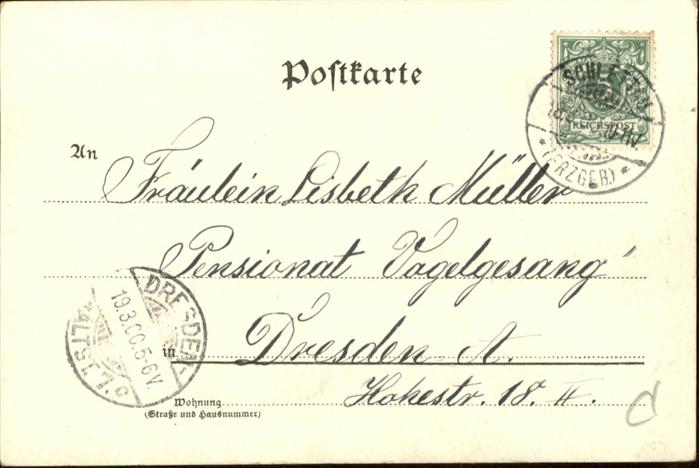 Postkarte
SCHLETTAU
REICHSPOST
* (ERZGEB.) *
An
Fräulein Lisbeth Müller
Pensionat Vogelgesang"
DRESDEN-
19.3.00.5-6V.
ALTST. 1.c
in
Dresden A.
Hohestr. 18. II.
Wohnung
(Straße und Hausnummer)